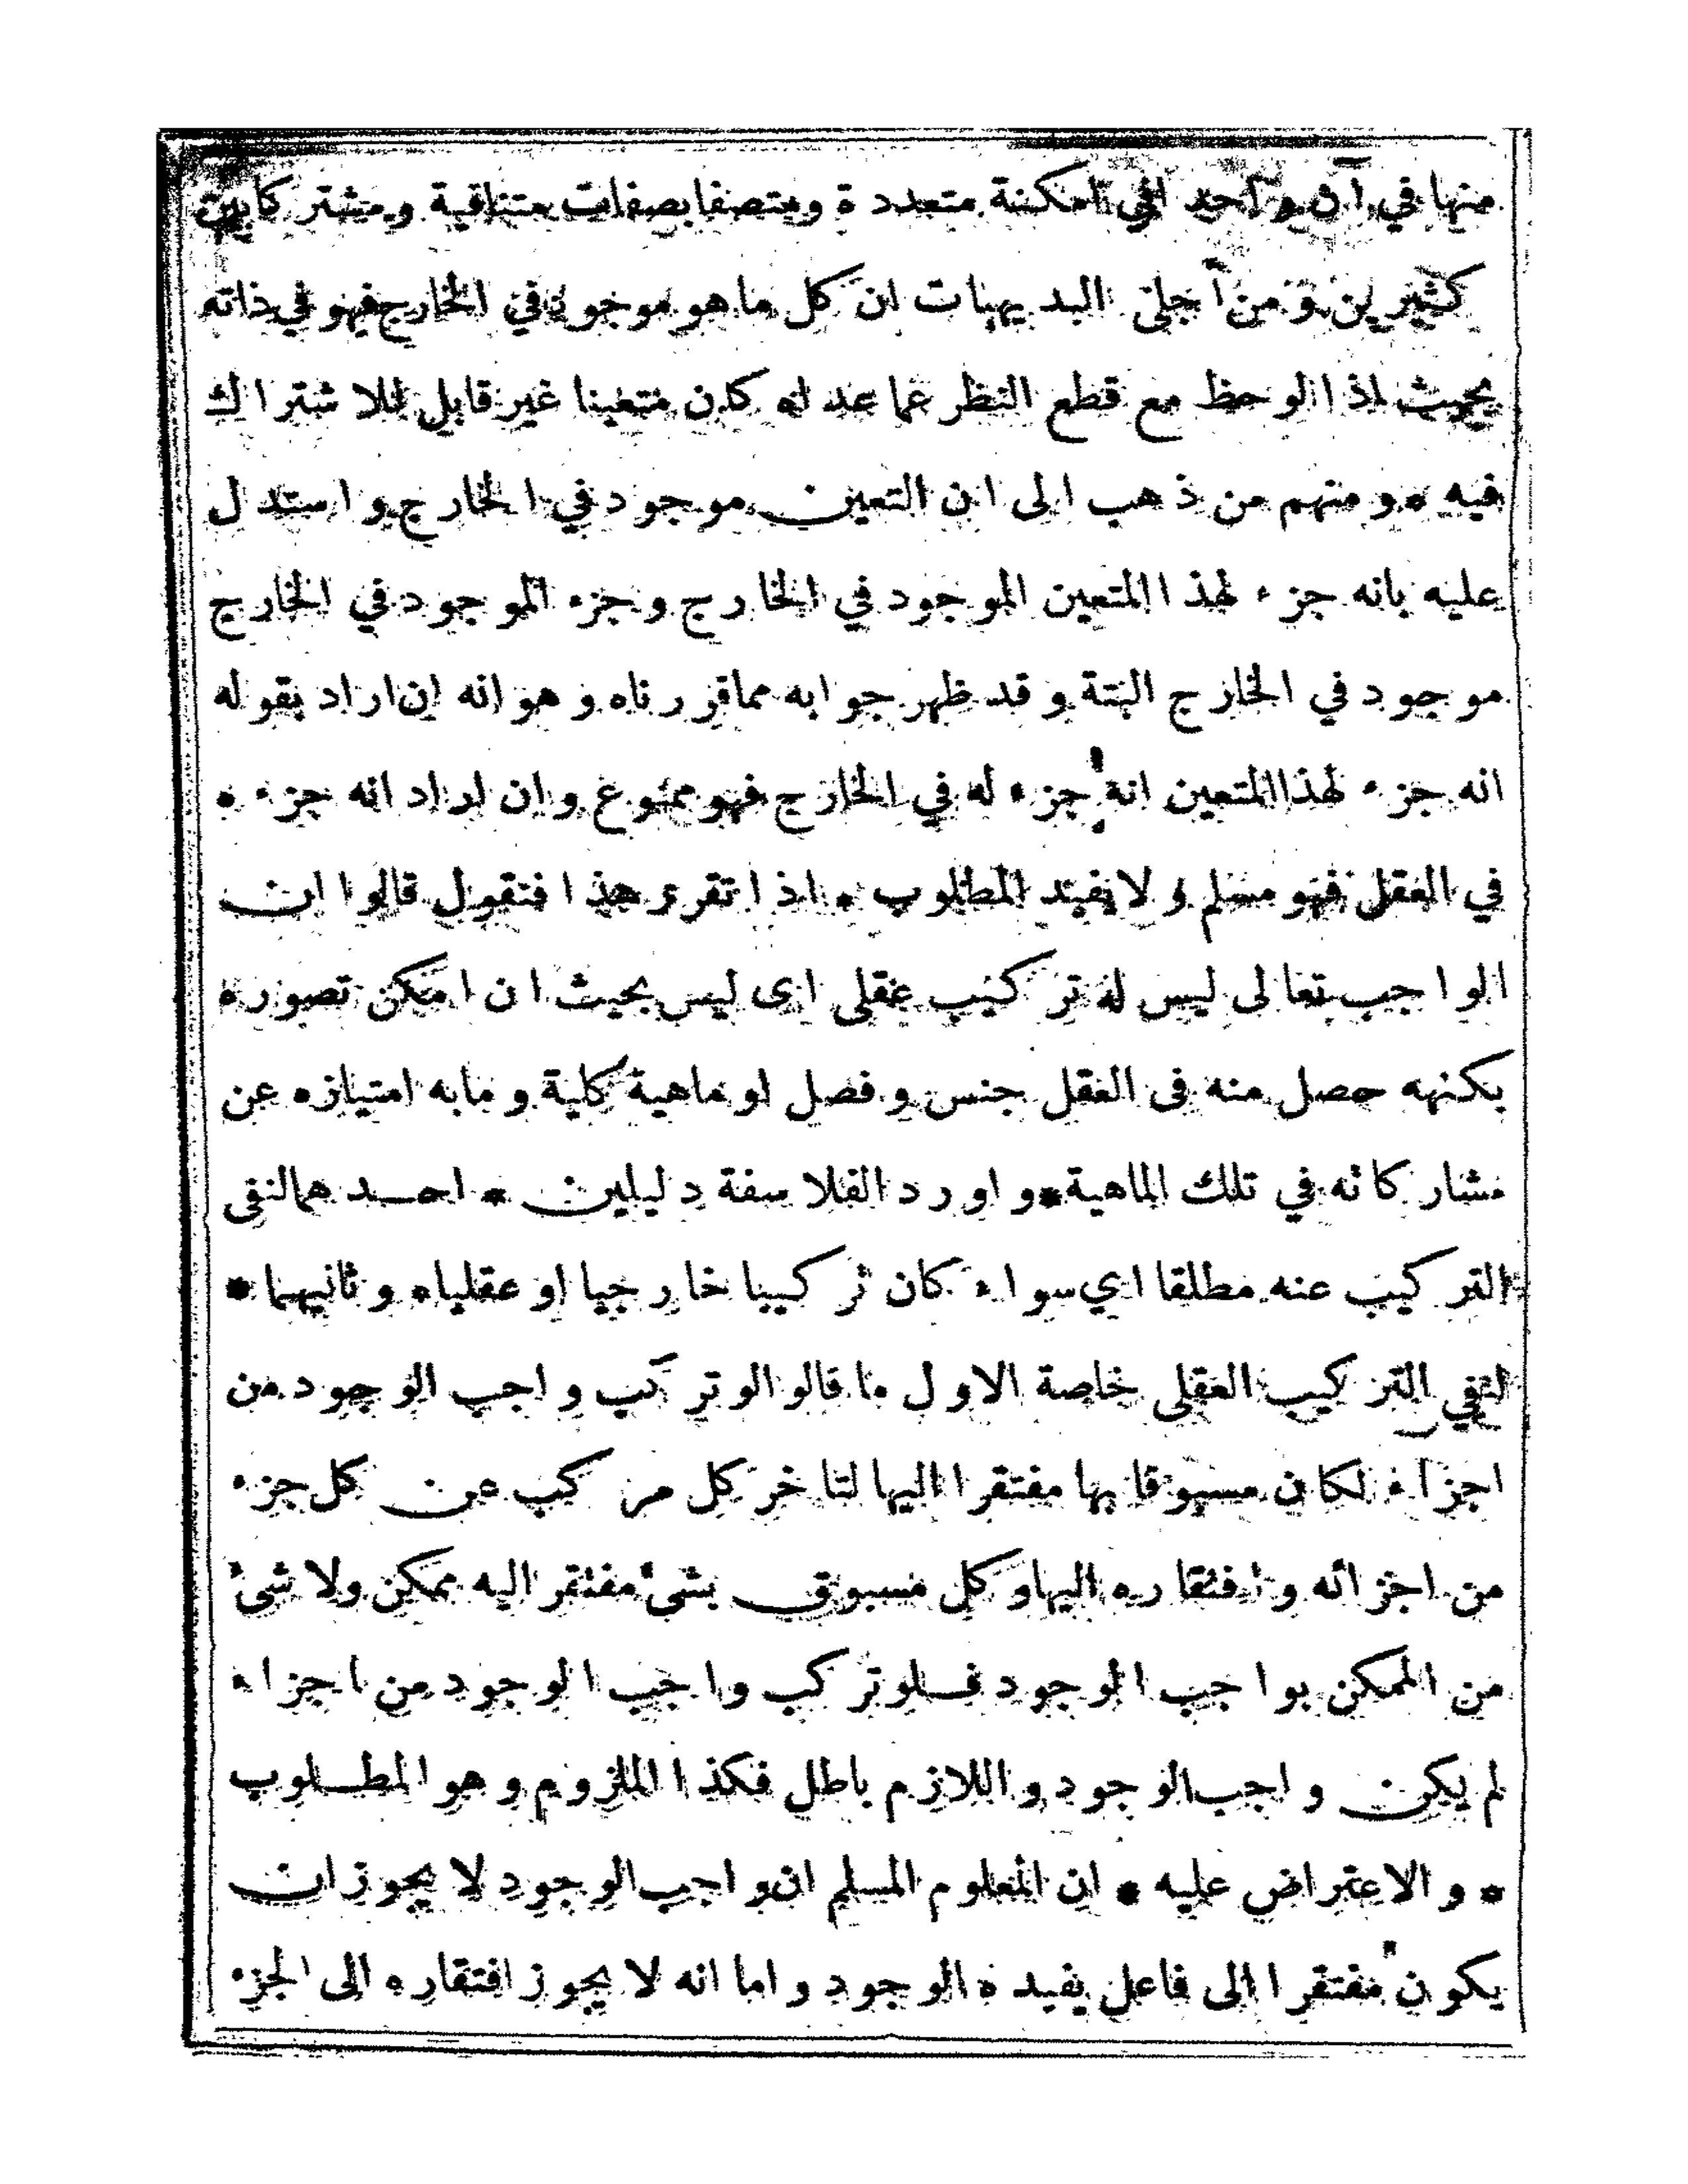 منها في آن واحد في امكنة متعددة ومتصفا بصفات متنافية ومشتركا بين
كثيرين ومن اجلى البديهيات ان كل ما هو موجود في الخارج فهو في ذاته
بحيث اذا لوحظ مع قطع النظر عما عداه كان متعينا غير قابل للاشتراك
فيه * ومنهم من ذهب الى ان التعين موجود في الخارج واستدل
عليه بانه جزء لهذا المتعين الموجود في الخارج وجزء الموجود في الخارج
موجود في الخارج البتة وقد ظهر جوابه مما قررناه وهو انه ان اراد بقوله
انه جزء لهذا المتعين انه جزء له في الخارج فهو ممنوع وان اراد انه جزءه
في العقل فهو مسلم ولا يفيد المطلوب * اذا تقرر هذا فنقول قالوا ان
الواجب تعالى ليس له تركيب عقلى اى ليس بحيث ان امكن تصوره
بكنهه حصل منه فى العقل جنس وفصل او ماهية كلية ومابه امتيازه عن
مشاركاته في تلك الماهية * واورد الفلاسفة دليلين * احدهما لنفى
التركيب عنه مطلقا اي سواء كان تركيبا خارجيا او عقليا * وثانيهما *
لنفي التركيب العقلى خاصة الاول ما قالوا لو تركب واجب الوجود من
اجزاء لكان مسبوقا بها مفتقرا اليها لتاخر كل مركب عن كل جزء
من اجزائه وافتقاره اليها وكل مسبوق بشئ مفتقر اليه ممكن ولا شئ
من الممكن بواجب الوجود فلو تركب واجب الوجود من اجزاء
لم يكن واجب الوجود واللازم باطل فكذا الملزوم وهو المطلوب
* والاعتراض عليه * ان المعلوم المسلم ان واجب الوجود لا يجوز ان
يكون مفتقرا الى فاعل يفيده الوجود واما انه لا يجوز افتقاره الى الجزء